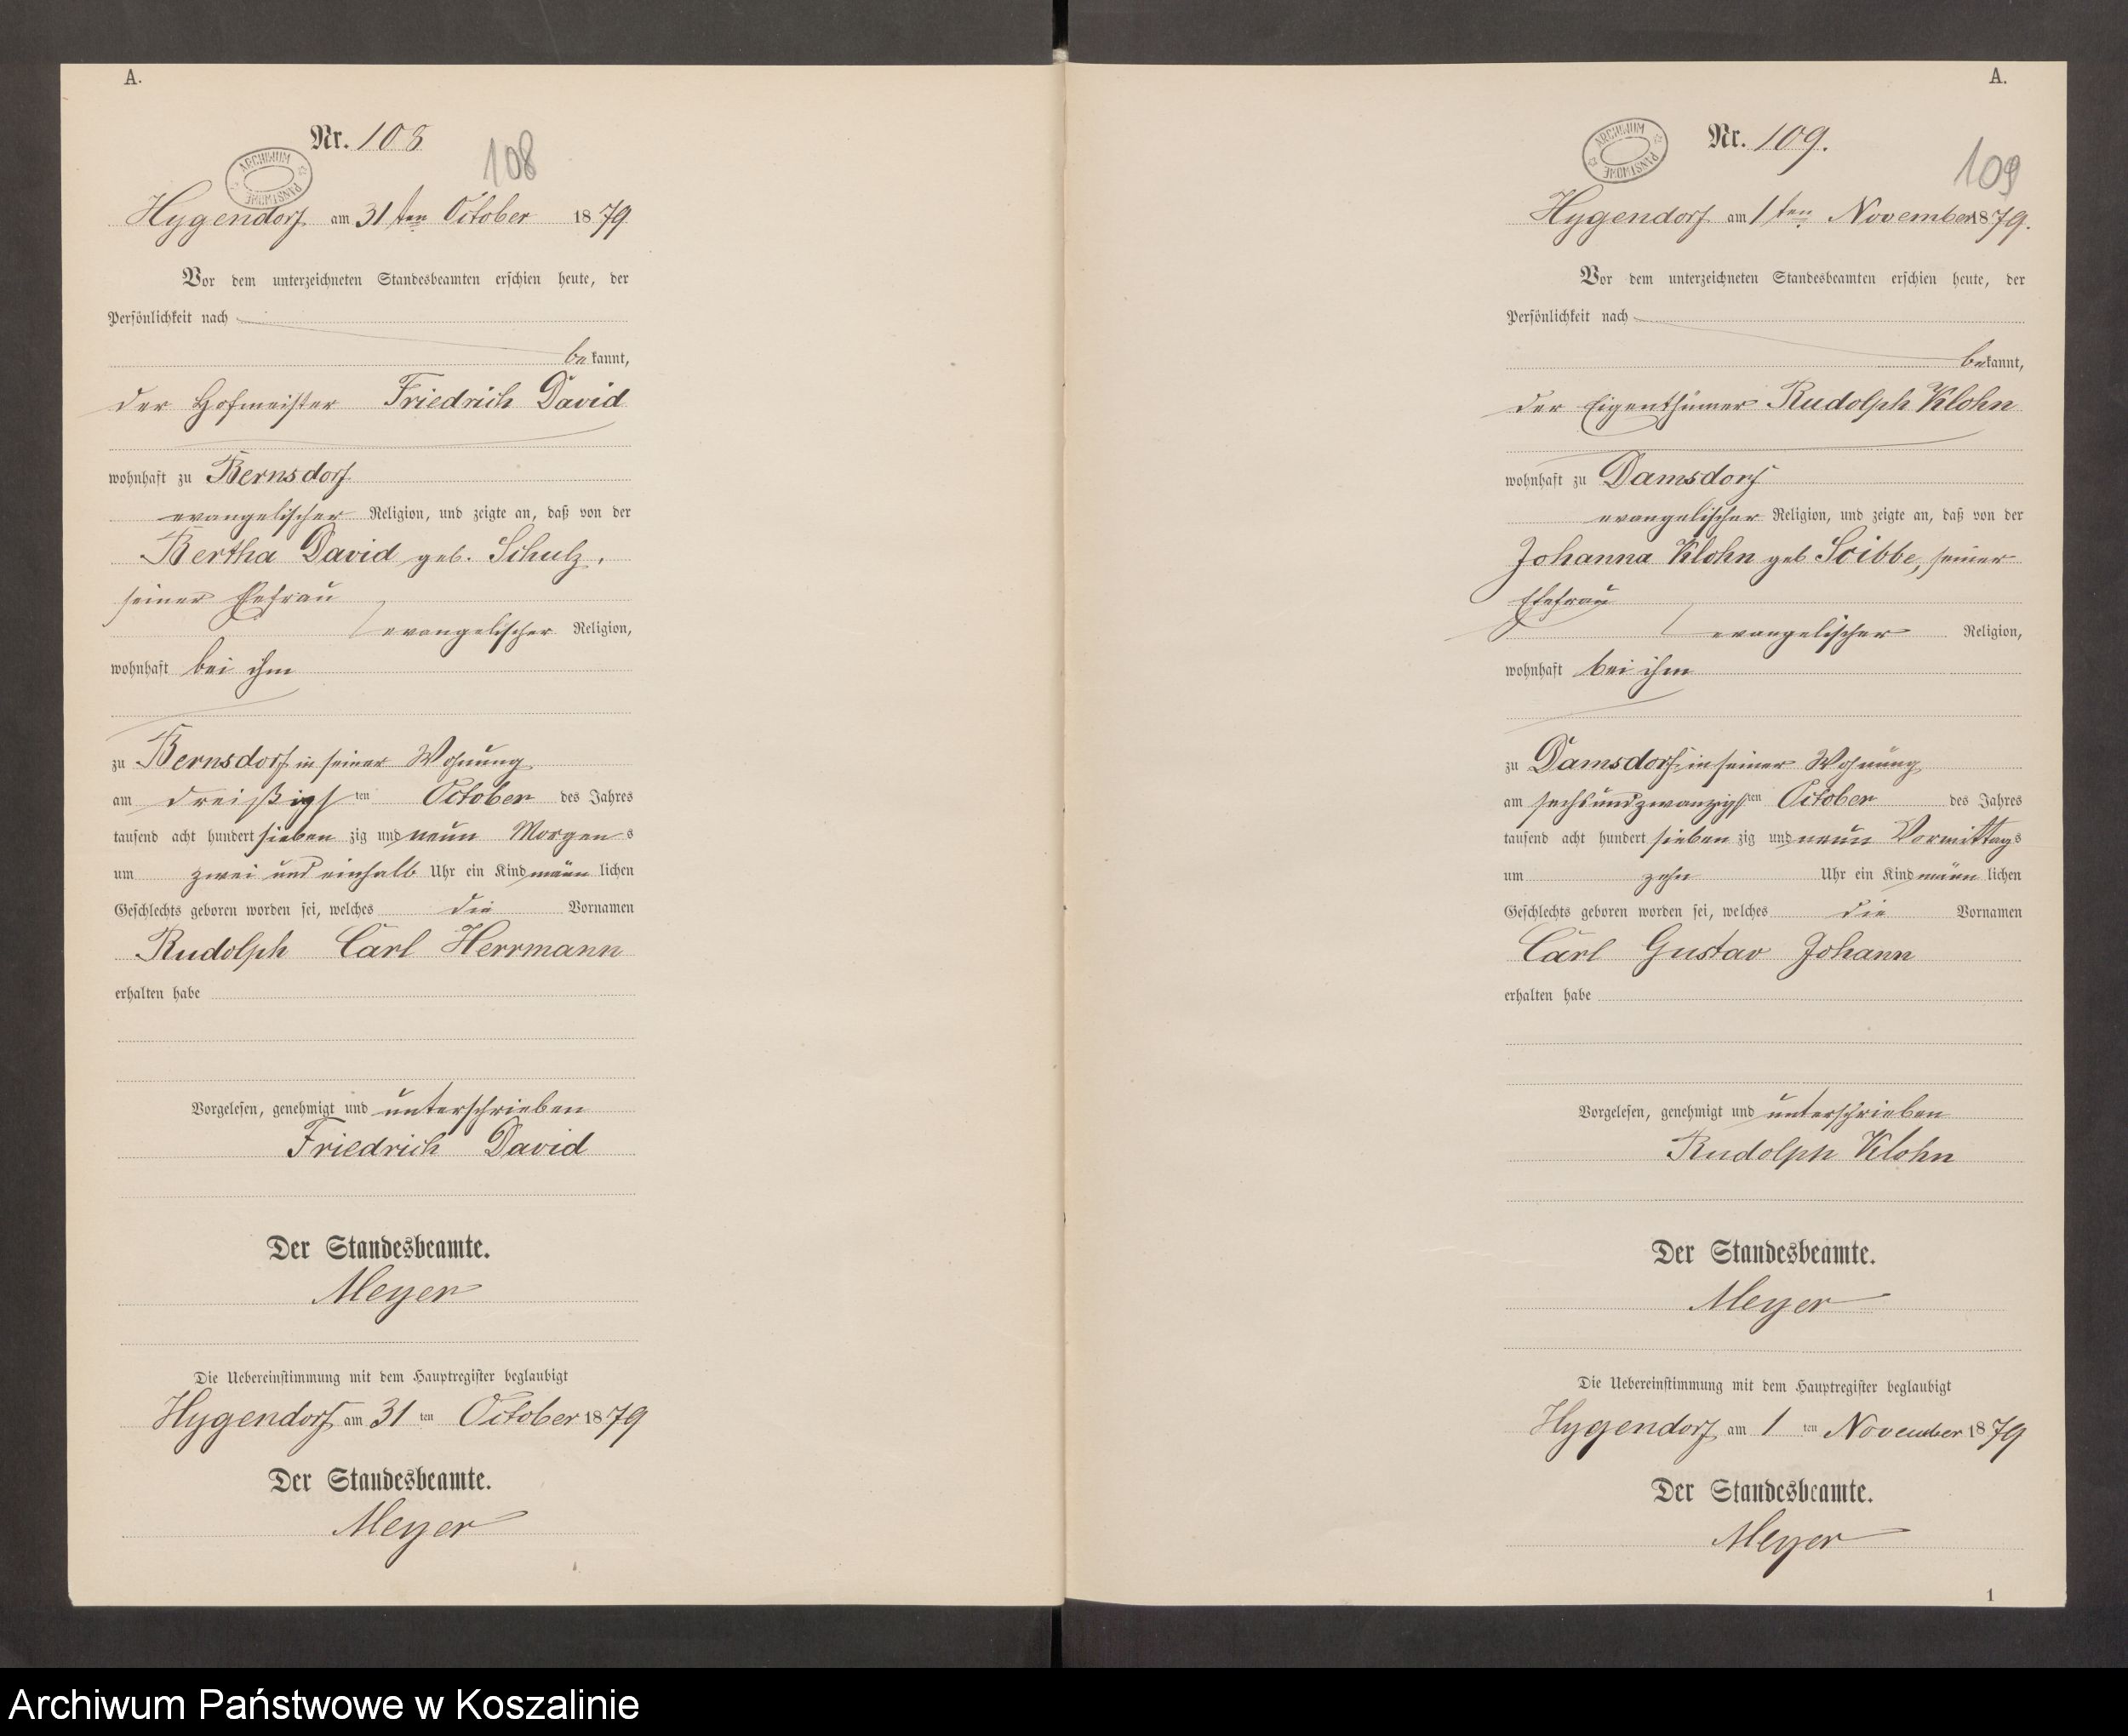 A.
Nr. 108
108
ARCHIWUM PAŃSTWOWE
Hygendorf am 31 ten October 1879
Vor dem unterzeichneten Standesbeamten erschien heute, der
Persönlichkeit nach
bekannt,
der Hofmeister Friedrich David
wohnhaft zu Bernsdorf
evangelischer Religion, und zeigte an, daß von der
Bertha David geb. Schulz,
seiner Ehefrau
evangelischer Religion,
wohnhaft bei ihm
zu Bernsdorf in seiner Wohnung
am dreißigsten October des Jahres
tausend acht hundert siebenzig und neun Morgens
um zwei und einhalb Uhr ein Kind männlichen
Geschlechts geboren worden sei, welches die Vornamen
Rudolph Carl Herrmann
erhalten habe
Vorgelesen, genehmigt und unterschrieben
Friedrich David
Der Standesbeamte.
Meyer
Die Uebereinstimmung mit dem Hauptregister beglaubigt
Hygendorf am 31 ten October 1879
Der Standesbeamte.
Meyer
A.
Nr. 109.
109
ARCHIWUM PAŃSTWOWE
Hygendorf am 1 ten November 1879.
Vor dem unterzeichneten Standesbeamten erschien heute, der
Persönlichkeit nach
bekannt,
der Eigenthümer Rudolph Klohn
wohnhaft zu Damsdorf
evangelischer Religion, und zeigte an, daß von der
Johanna Klohn geb Scibbe, seiner
Ehefrau
evangelischer Religion,
wohnhaft bei ihm
zu Damsdorf, in seiner Wohnung
am sechsundzwanzigsten October des Jahres
tausend acht hundert siebenzig und neun Vormittags
um zehn Uhr ein Kind männlichen
Geschlechts geboren worden sei, welches die Vornamen
Carl Gustav Johann
erhalten habe
Vorgelesen, genehmigt und unterschrieben
Rudolph Klohn
Der Standesbeamte.
Meyer
Die Uebereinstimmung mit dem Hauptregister beglaubigt
Hygendorf am 1 ten November 1879
Der Standesbeamte.
Meyer
1
Archiwum Państwowe w Koszalinie